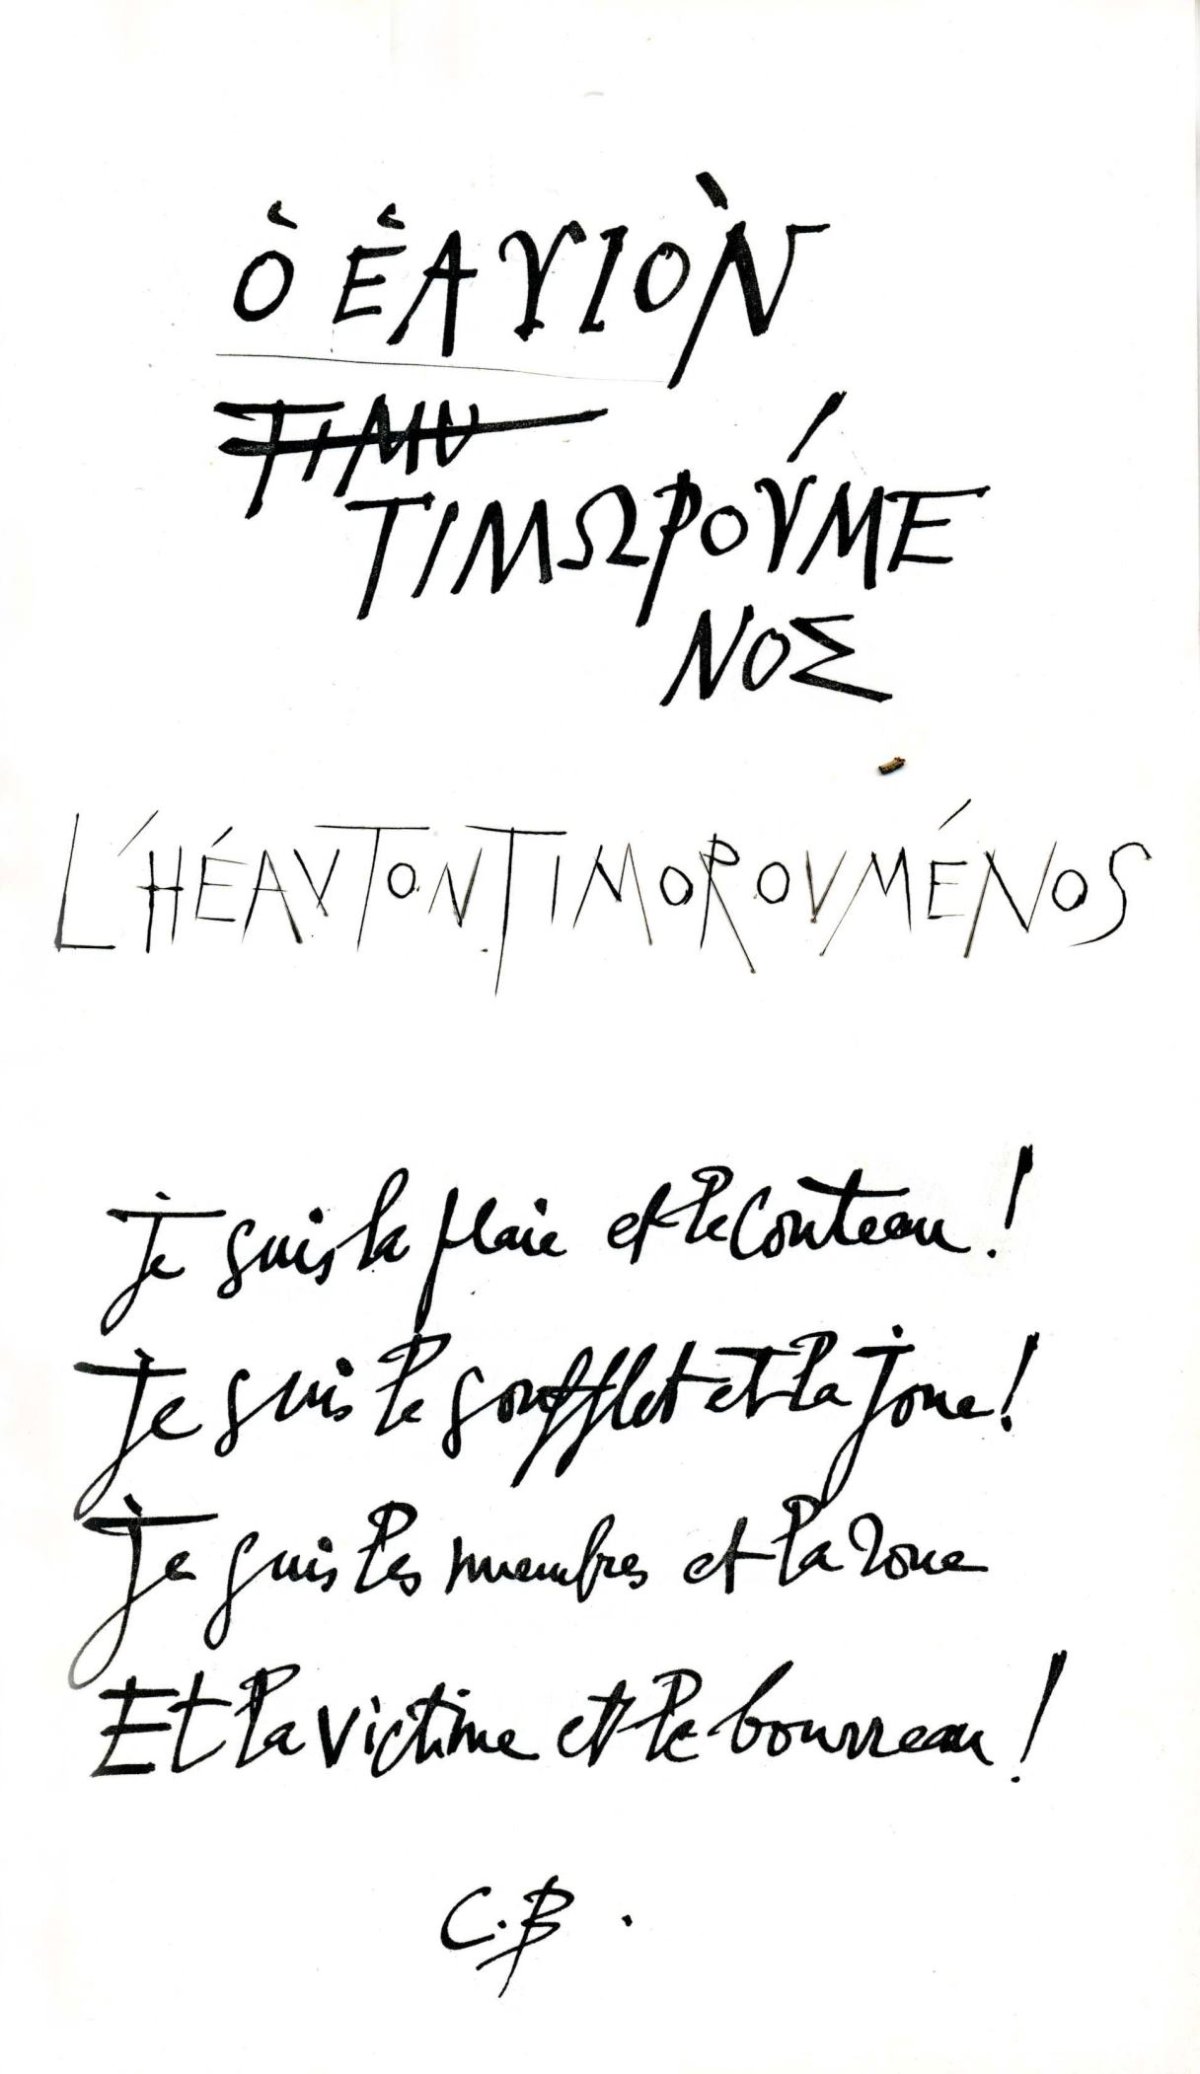 Ὁ ἙΑΥΙΟῸΝ
ΤΙΜΩΡΟΎΜΕ
ΝΟΣ
L'HÉAUTON.TIMOROUMÉNOS
Je suis la plaie et le couteau !
Je suis le soufflet et la joue !
Je suis les membres et la roue
Et la victime et le bourreau !
C.B.